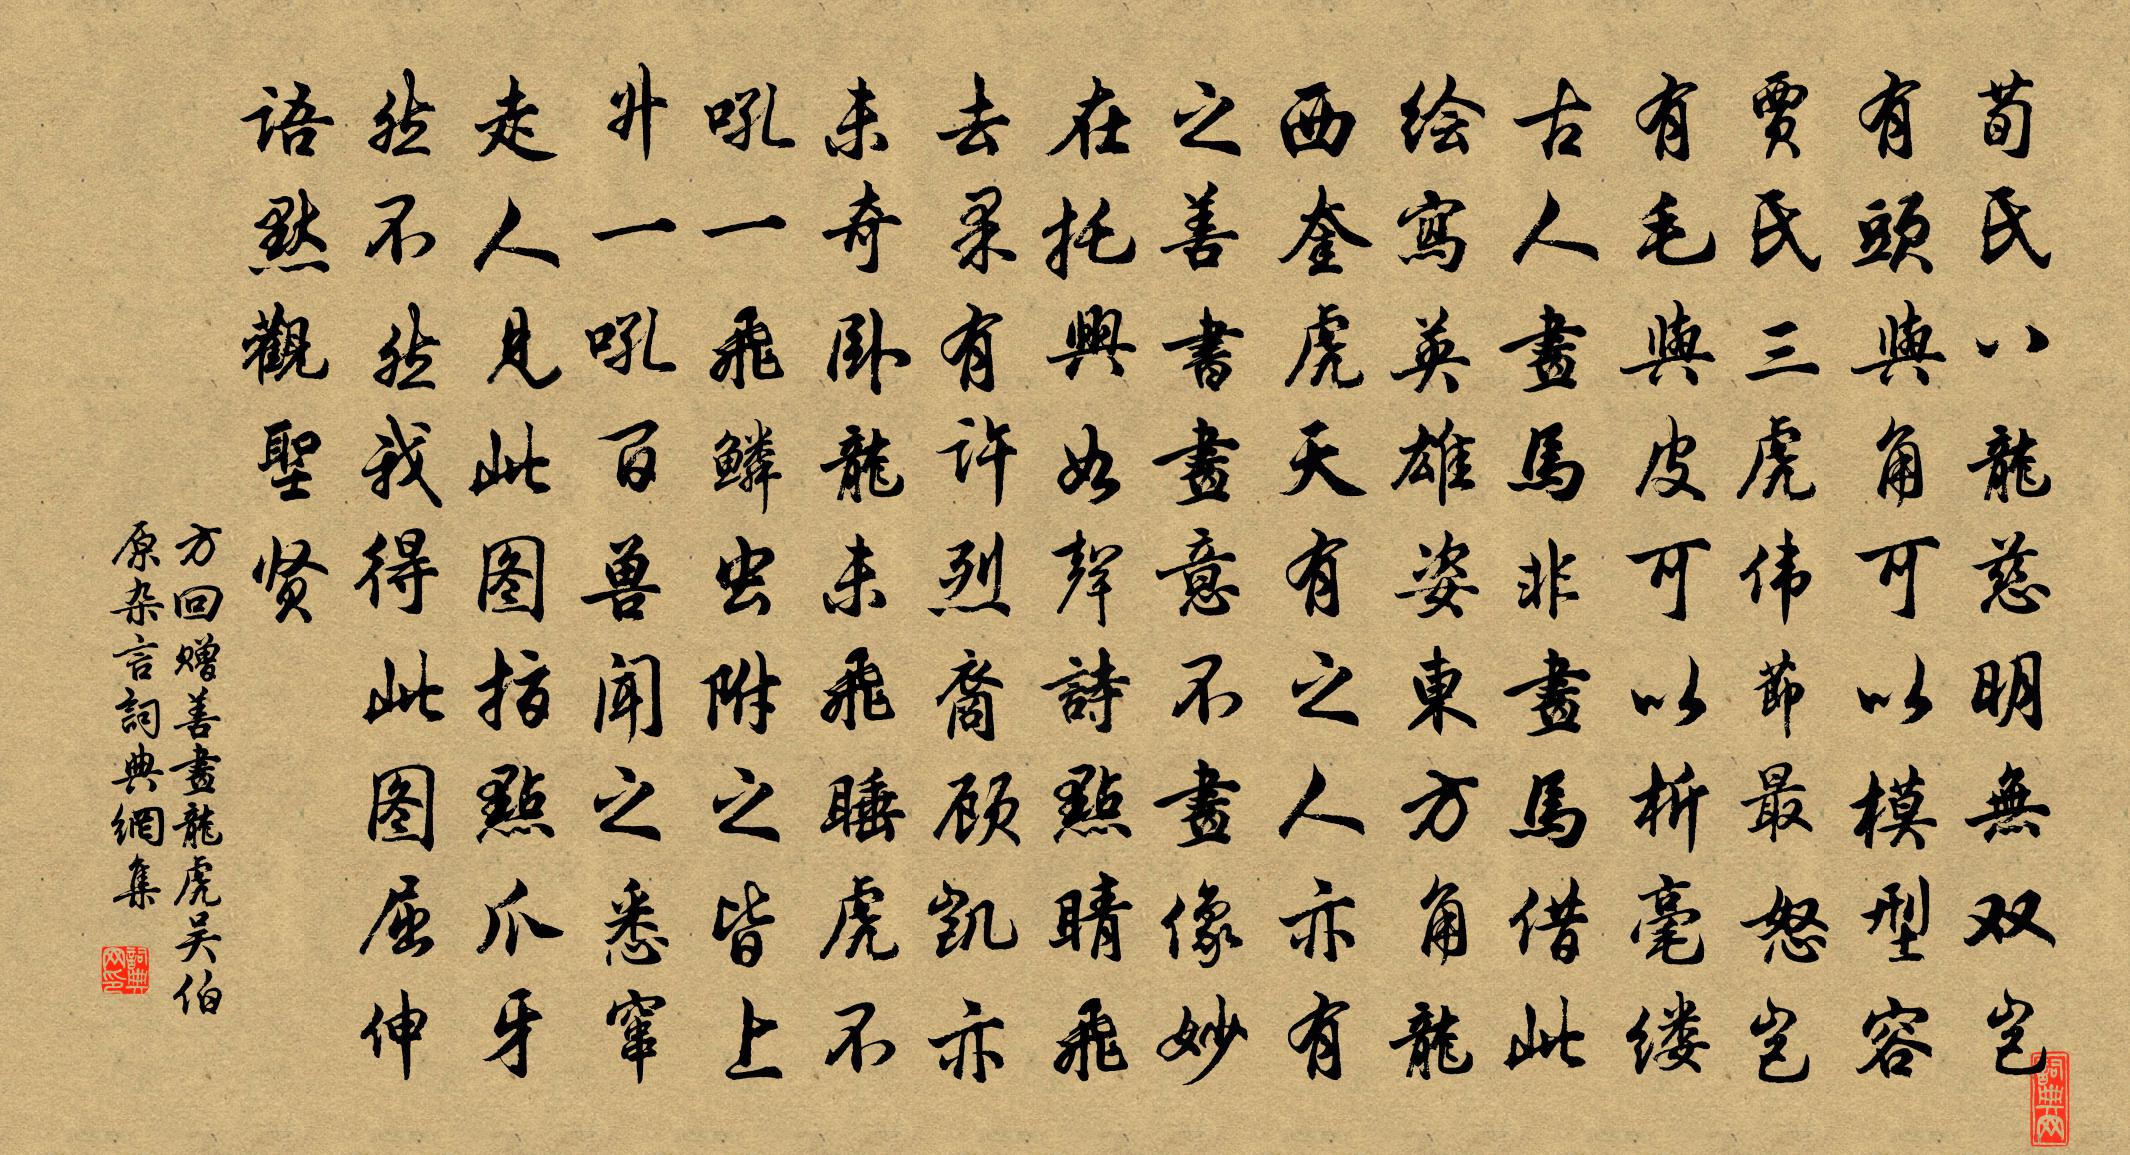 荀氏八龍慈明無双岂
有頭與角可以模型容
賈氏三虎伟節最怒岂
有毛與皮可以析毫缕
古人畫馬非畫馬借此
绘寫英雄姿東方角龍
西奎虎天有之人亦有
之善書畫意不畫像妙
在托興如聲詩點睛飛
去柔有许烈裔顾凯亦
未奇卧龍未飛睡虎不
吼一飛鳞虫附之皆上
升一吼百兽闻之悉窜
走人見此图指點爪牙
然不然我得此图屈伸
語默觀聖贤
方回赠善畫龍虎吴伯
原杂言詞典網集
詞典网
詞典网印